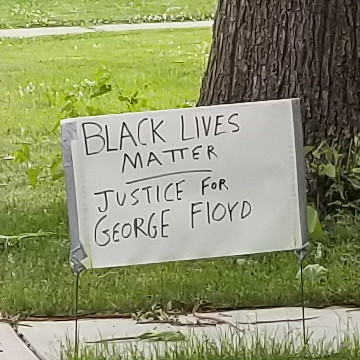 BLACK LIVES
MATTER
JUSTICE FOR
GEORGE FlOYD